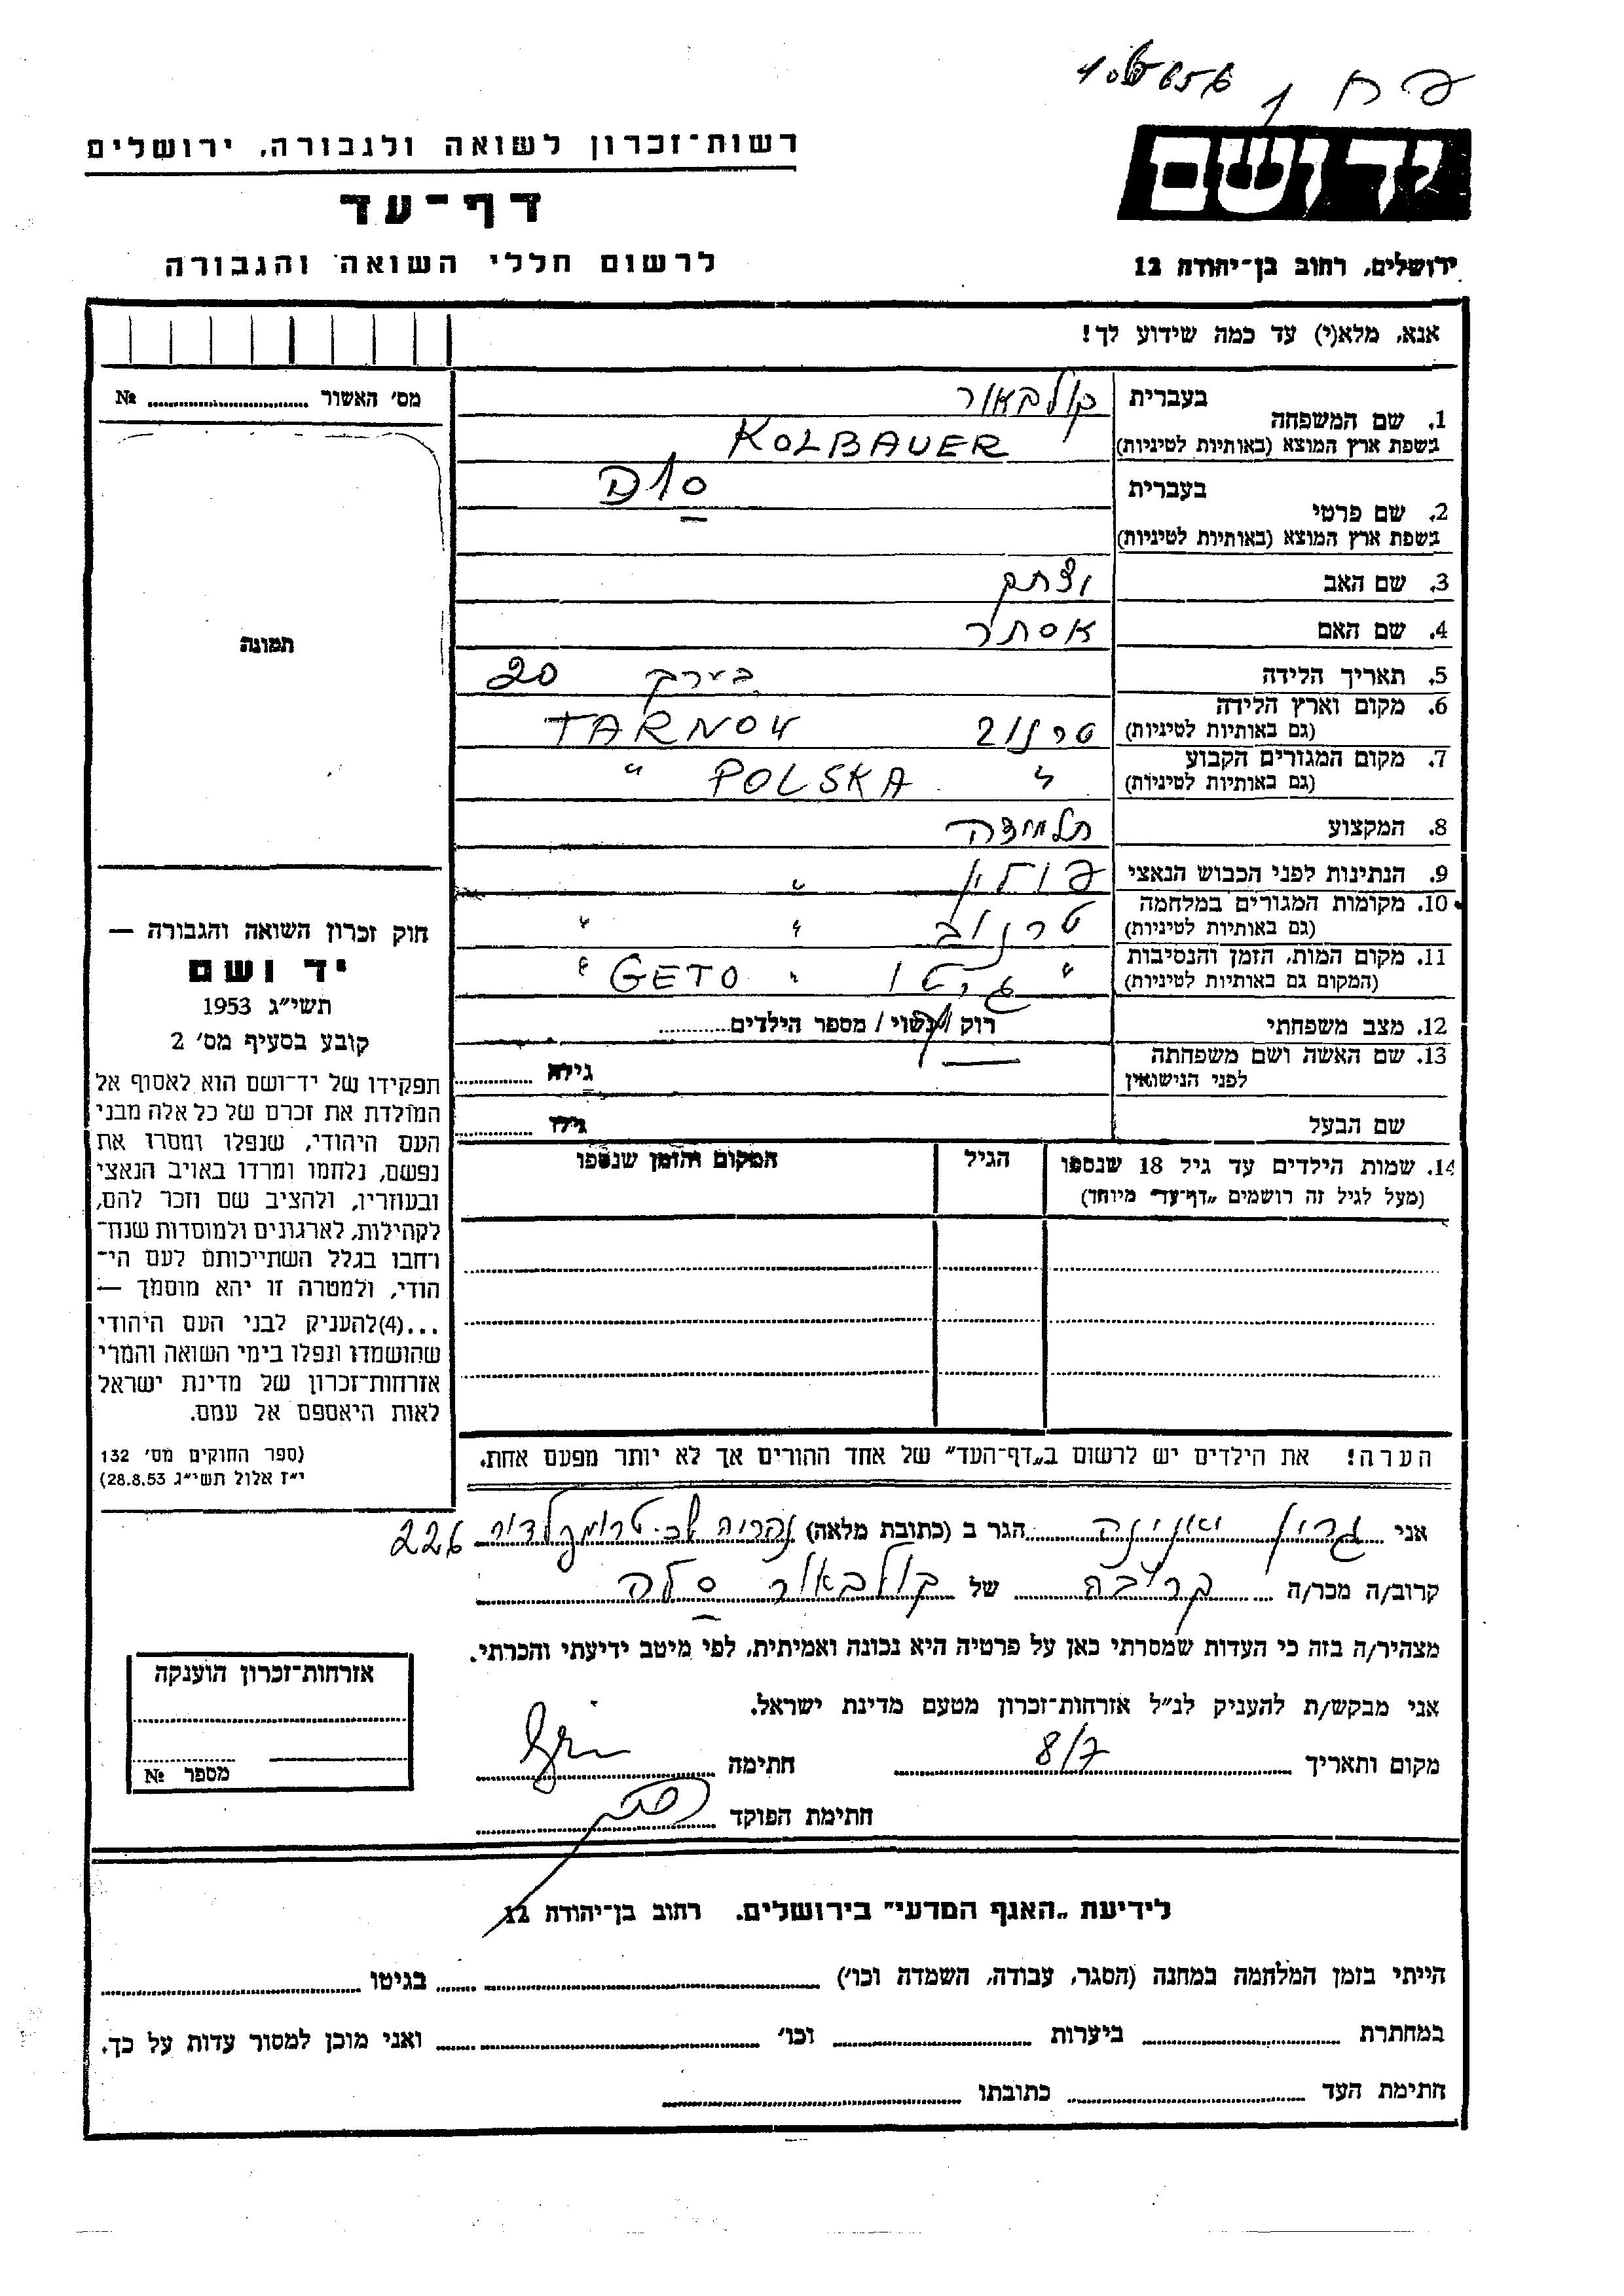 רשות־זכרון לשואה ולגבורה, ירושלים
דף־עד
לרשום חללי השואה והגבורה
יד ושם
ירושלים, רחוב בן־יהודה 12
אנא, מלא(י) עד כמה שידוע לך!
מס׳ האשור № ........
תמונה
1. שם המשפחה בעברית קולבאור
בשפת ארץ המוצא (באותיות לטיניות) KOLBAUER
2. שם פרטי בעברית
בשפת ארץ המוצא (באותיות לטיניות)
3. שם האב יצחק
4. שם האם אסתר
5. תאריך הלידה בערך 20
6. מקום וארץ הלידה (גם באותיות לטיניות) טרנוב TARNOV
7. מקום המגורים הקבוע (גם באותיות לטיניות) " POLSKA "
8. המקצוע תלמידה
9. הנתינות לפני הכבוש הנאצי פולין "
10. מקומות המגורים במלחמה (גם באותיות לטיניות) טרנוב " "
11. מקום המות, הזמן והנסיבות (המקום גם באותיות לטיניות) " גיטו " GETO "
12. מצב משפחתי רוק / נשוי / מספר הילדים........
13. שם האשה ושם משפחתה לפני הנישואין גילה ........
שם הבעל גילו ........
14. שמות הילדים עד גיל 18 שנספו (מעל לגיל זה רושמים „דף־עד״ מיוחד) הגיל המקום והזמן שנספו
הערה! את הילדים יש לרשום ב„דף־העד״ של אחד ההורים אך לא יותר מפעם אחת.
חוק זכרון השואה והגבורה —
יד ושם
תשי״ג 1953
קובע בסעיף מס׳ 2
תפקידו של יד־ושם הוא לאסוף אל
המולדת את זכרם של כל אלה מבני
העם היהודי, שנפלו ומסרו את
נפשם, נלחמו ומרדו באויב הנאצי
ובעוזריו, ולהציב שם וזכר להם,
לקהילות, לארגונים ולמוסדות שנח־
רחבו בגלל השתייכותם לעם הי־
הודי, ולמטרה זו יהא מוסמך —
...(4)להעניק לבני העם היהודי
שהושמדו ונפלו בימי השואה והמרי
אזרחות־זכרון של מדינת ישראל
לאות היאספם אל עמם.
(ספר החוקים מס׳ 132
י״ז אלול תשי״ג 28.8.53)
אני גרין יאנינה הגר ב (כתובת מלאה) נהריה טרומפלדור 226
קרוב/ה מכר/ה קרובה של קולבאור סלה
מצהיר/ה בזה כי העדות שמסרתי כאן על פרטיה היא נכונה ואמיתית, לפי מיטב ידיעתי והכרתי.
אני מבקש/ת להעניק לנ״ל אזרחות־זכרון מטעם מדינת ישראל.
מקום ותאריך 8/7 חתימה
חתימת הפוקד
אזרחות־זכרון הוענקה
מספר №
לידיעת „האגף המדעי״ בירושלים, רחוב בן־יהודה 12
הייתי בזמן המלחמה במחנה (הסגר, עבודה, השמדה וכו׳) ........ בגיטו ........
במחתרת ........ ביערות ........ וכו׳ ........ ואני מוכן למסור עדות על כך.
חתימת העד ........ כתובתו ........